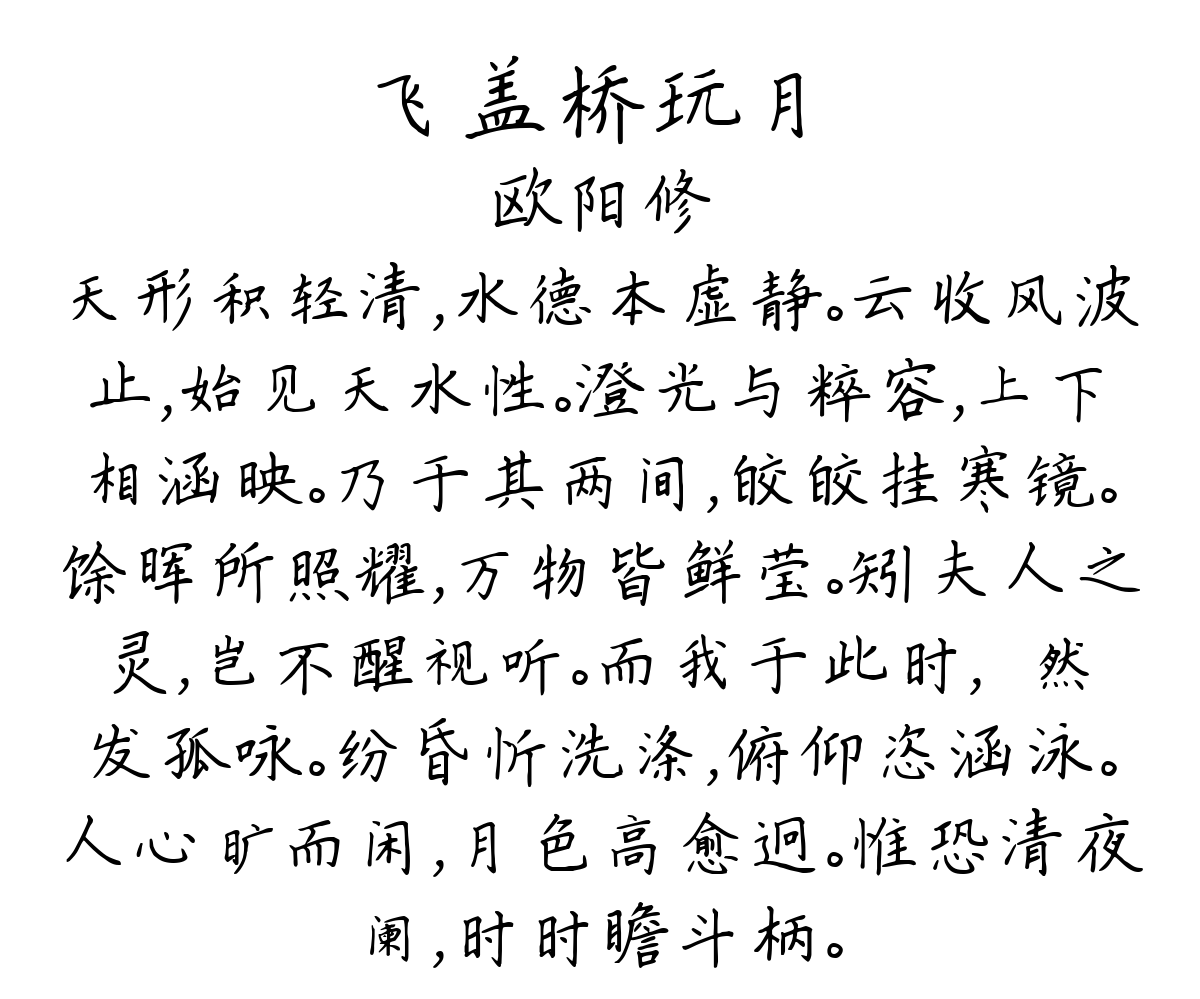 飞盖桥玩月
欧阳修
天形积轻清,水德本虚静。云收风波
止,始见天水性。澄光与粹容,上下
相涵映。乃于其两间,皎皎挂寒镜。
馀晖所照耀,万物皆鲜莹。矧夫人之
灵,岂不醒视听。而我于此时, 然
发孤咏。纷昏忻洗涤,俯仰恣涵泳。
人心旷而闲,月色高愈迥。惟恐清夜
阑,时时瞻斗柄。